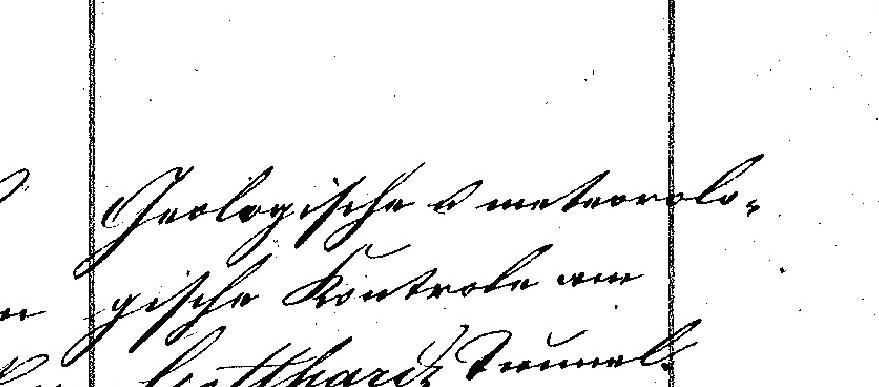 Geologische & meteorolo-
gische Kontrole am
Gotthard Tunnel.